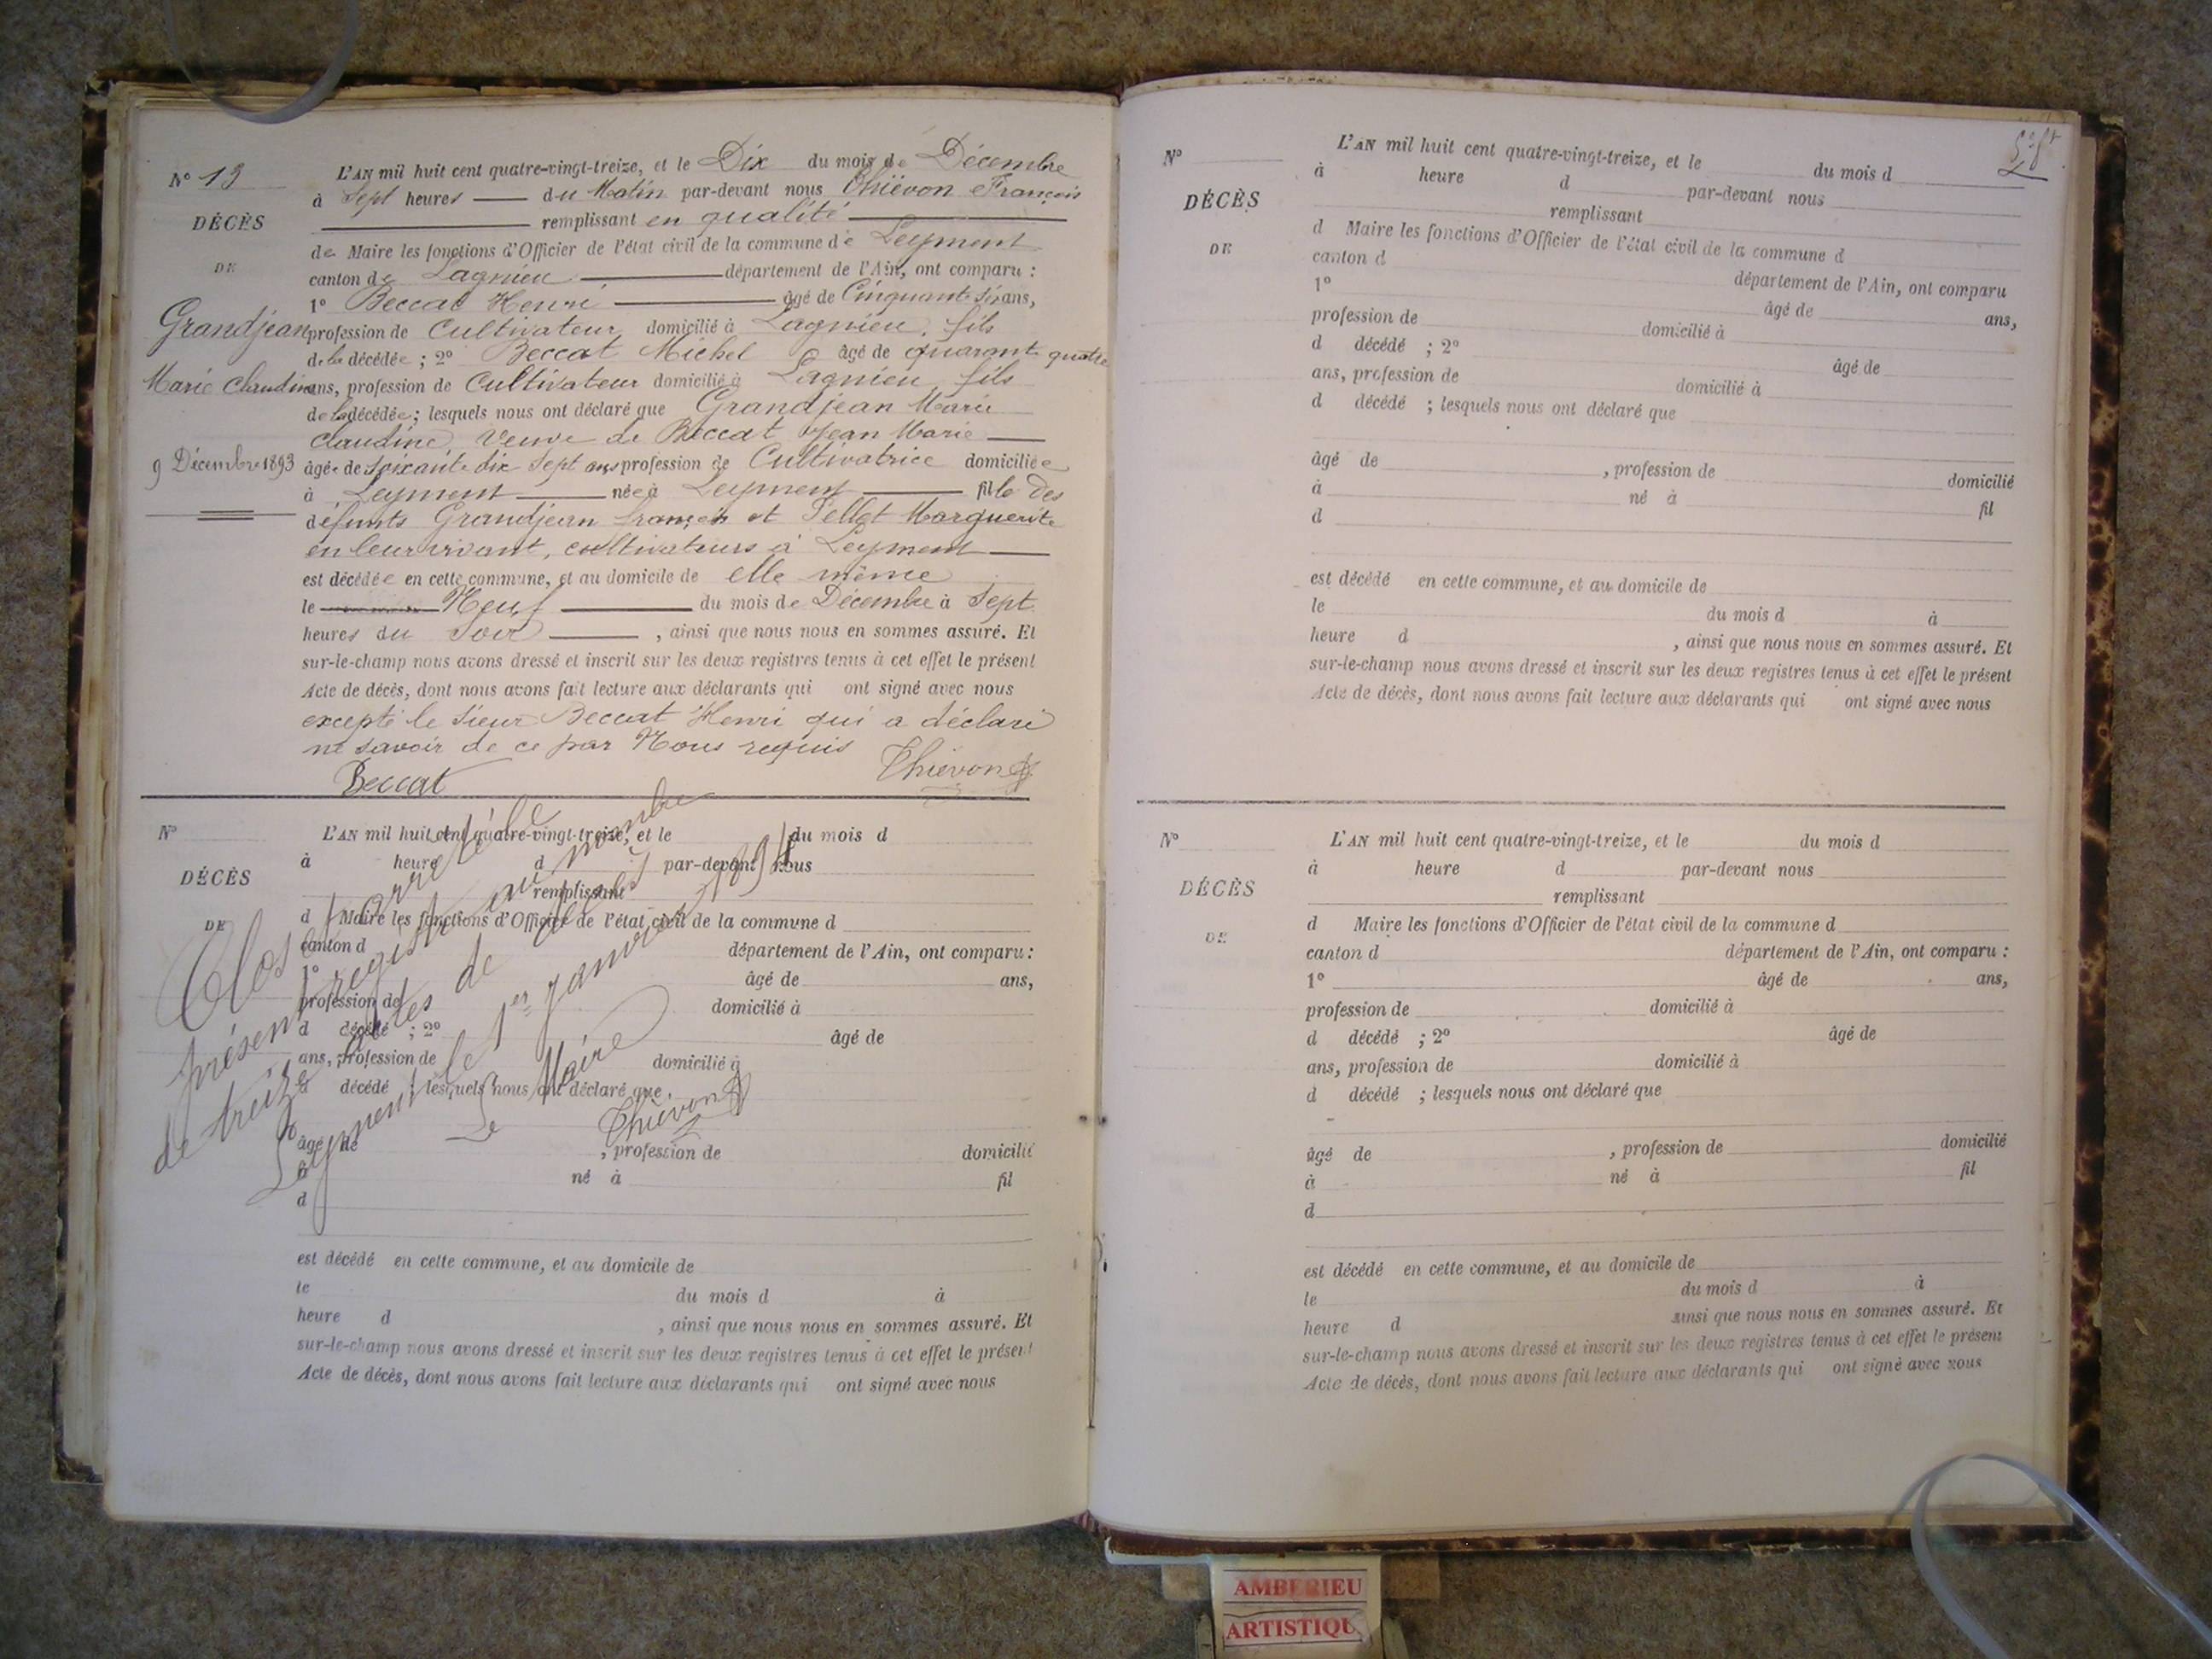 N° 13
DÉCÈS
DE
Grandjean
Marie Claudine
9 Décembre 1893
L'AN mil huit cent quatre-vingt-treize, et le Dix du mois de Décembre
à Sept heures du Matin par-devant nous Thiévon François
remplissant en qualité
de Maire les fonctions d'Officier de l'état civil de la commune de Leyment
canton de Lagnieu département de l'Ain, ont comparu :
1° Beccat Henri âgé de Cinquante six ans,
profession de Cultivateur domicilié à Lagnieu, fils
de la décédée ; 2° Beccat Michel âgé de quarante quatre
ans, profession de Cultivateur domicilié à Lagnieu, fils
de la décédée ; lesquels nous ont déclaré que Grandjean Marie
Claudine, Veuve de Beccat Jean Marie
âgée de soixante dix sept ans profession de Cultivatrice domiciliée
à Leyment née à Leyment fille des
défunts Grandjean François et Pellet Marguerite
en leur vivant, cultivateurs à Leyment
est décédée en cette commune, et au domicile de elle même
le Neuf du mois de Décembre à Sept
heures du Soir , ainsi que nous nous en sommes assuré. Et
sur-le-champ nous avons dressé et inscrit sur les deux registres tenus à cet effet le présent
Acte de décès, dont nous avons fait lecture aux déclarants qui ont signé avec nous
excepté le sieur Beccat Henri qui a déclaré
ne savoir de ce par Nous requis
Beccat Thiévon
N°
DÉCÈS
DE
L'AN mil huit cent quatre-vingt-treize, et le du mois d
à heure d par-devant nous
remplissant
d Maire les fonctions d'Officier de l'état civil de la commune d
canton d département de l'Ain, ont comparu :
1° âgé de ans,
profession de domicilié à
d décédé ; 2° âgé de
ans, profession de domicilié à
d décédé ; lesquels nous ont déclaré que
âgé de , profession de domicilié
à né à fil
d
est décédé en cette commune, et au domicile de
le du mois d à
heure d , ainsi que nous nous en sommes assuré. Et
sur-le-champ nous avons dressé et inscrit sur les deux registres tenus à cet effet le présent
Acte de décès, dont nous avons fait lecture aux déclarants qui ont signé avec nous
Clos et arrêté le
présent registre au nombre
de treize actes de décès
Leyment le 1er janvier 1894
Le Maire
Thiévon
N°
DÉCÈS
DE
L'AN mil huit cent quatre-vingt-treize, et le du mois d
à heure d par-devant nous
remplissant
d Maire les fonctions d'Officier de l'état civil de la commune d
canton d département de l'Ain, ont comparu
1° âgé de ans,
profession de domicilié à
d décédé ; 2° âgé de
ans, profession de domicilié à
d décédé ; lesquels nous ont déclaré que
âgé de , profession de domicilié
à né à fil
d
est décédé en cette commune, et au domicile de
le du mois d à
heure d , ainsi que nous nous en sommes assuré. Et
sur-le-champ nous avons dressé et inscrit sur les deux registres tenus à cet effet le présent
Acte de décès, dont nous avons fait lecture aux déclarants qui ont signé avec nous
N°
DÉCÈS
DE
L'AN mil huit cent quatre-vingt-treize, et le du mois d
à heure d par-devant nous
remplissant
d Maire les fonctions d'Officier de l'état civil de la commune d
canton d département de l'Ain, ont comparu :
1° âgé de ans,
profession de domicilié à
d décédé ; 2° âgé de
ans, profession de domicilié à
d décédé ; lesquels nous ont déclaré que
âgé de , profession de domicilié
à né à fil
d
est décédé en cette commune, et au domicile de
le du mois d à
heure d ainsi que nous nous en sommes assuré. Et
sur-le-champ nous avons dressé et inscrit sur les deux registres tenus à cet effet le présent
Acte de décès, dont nous avons fait lecture aux déclarants qui ont signé avec nous
AMBERIEU
ARTISTIQU